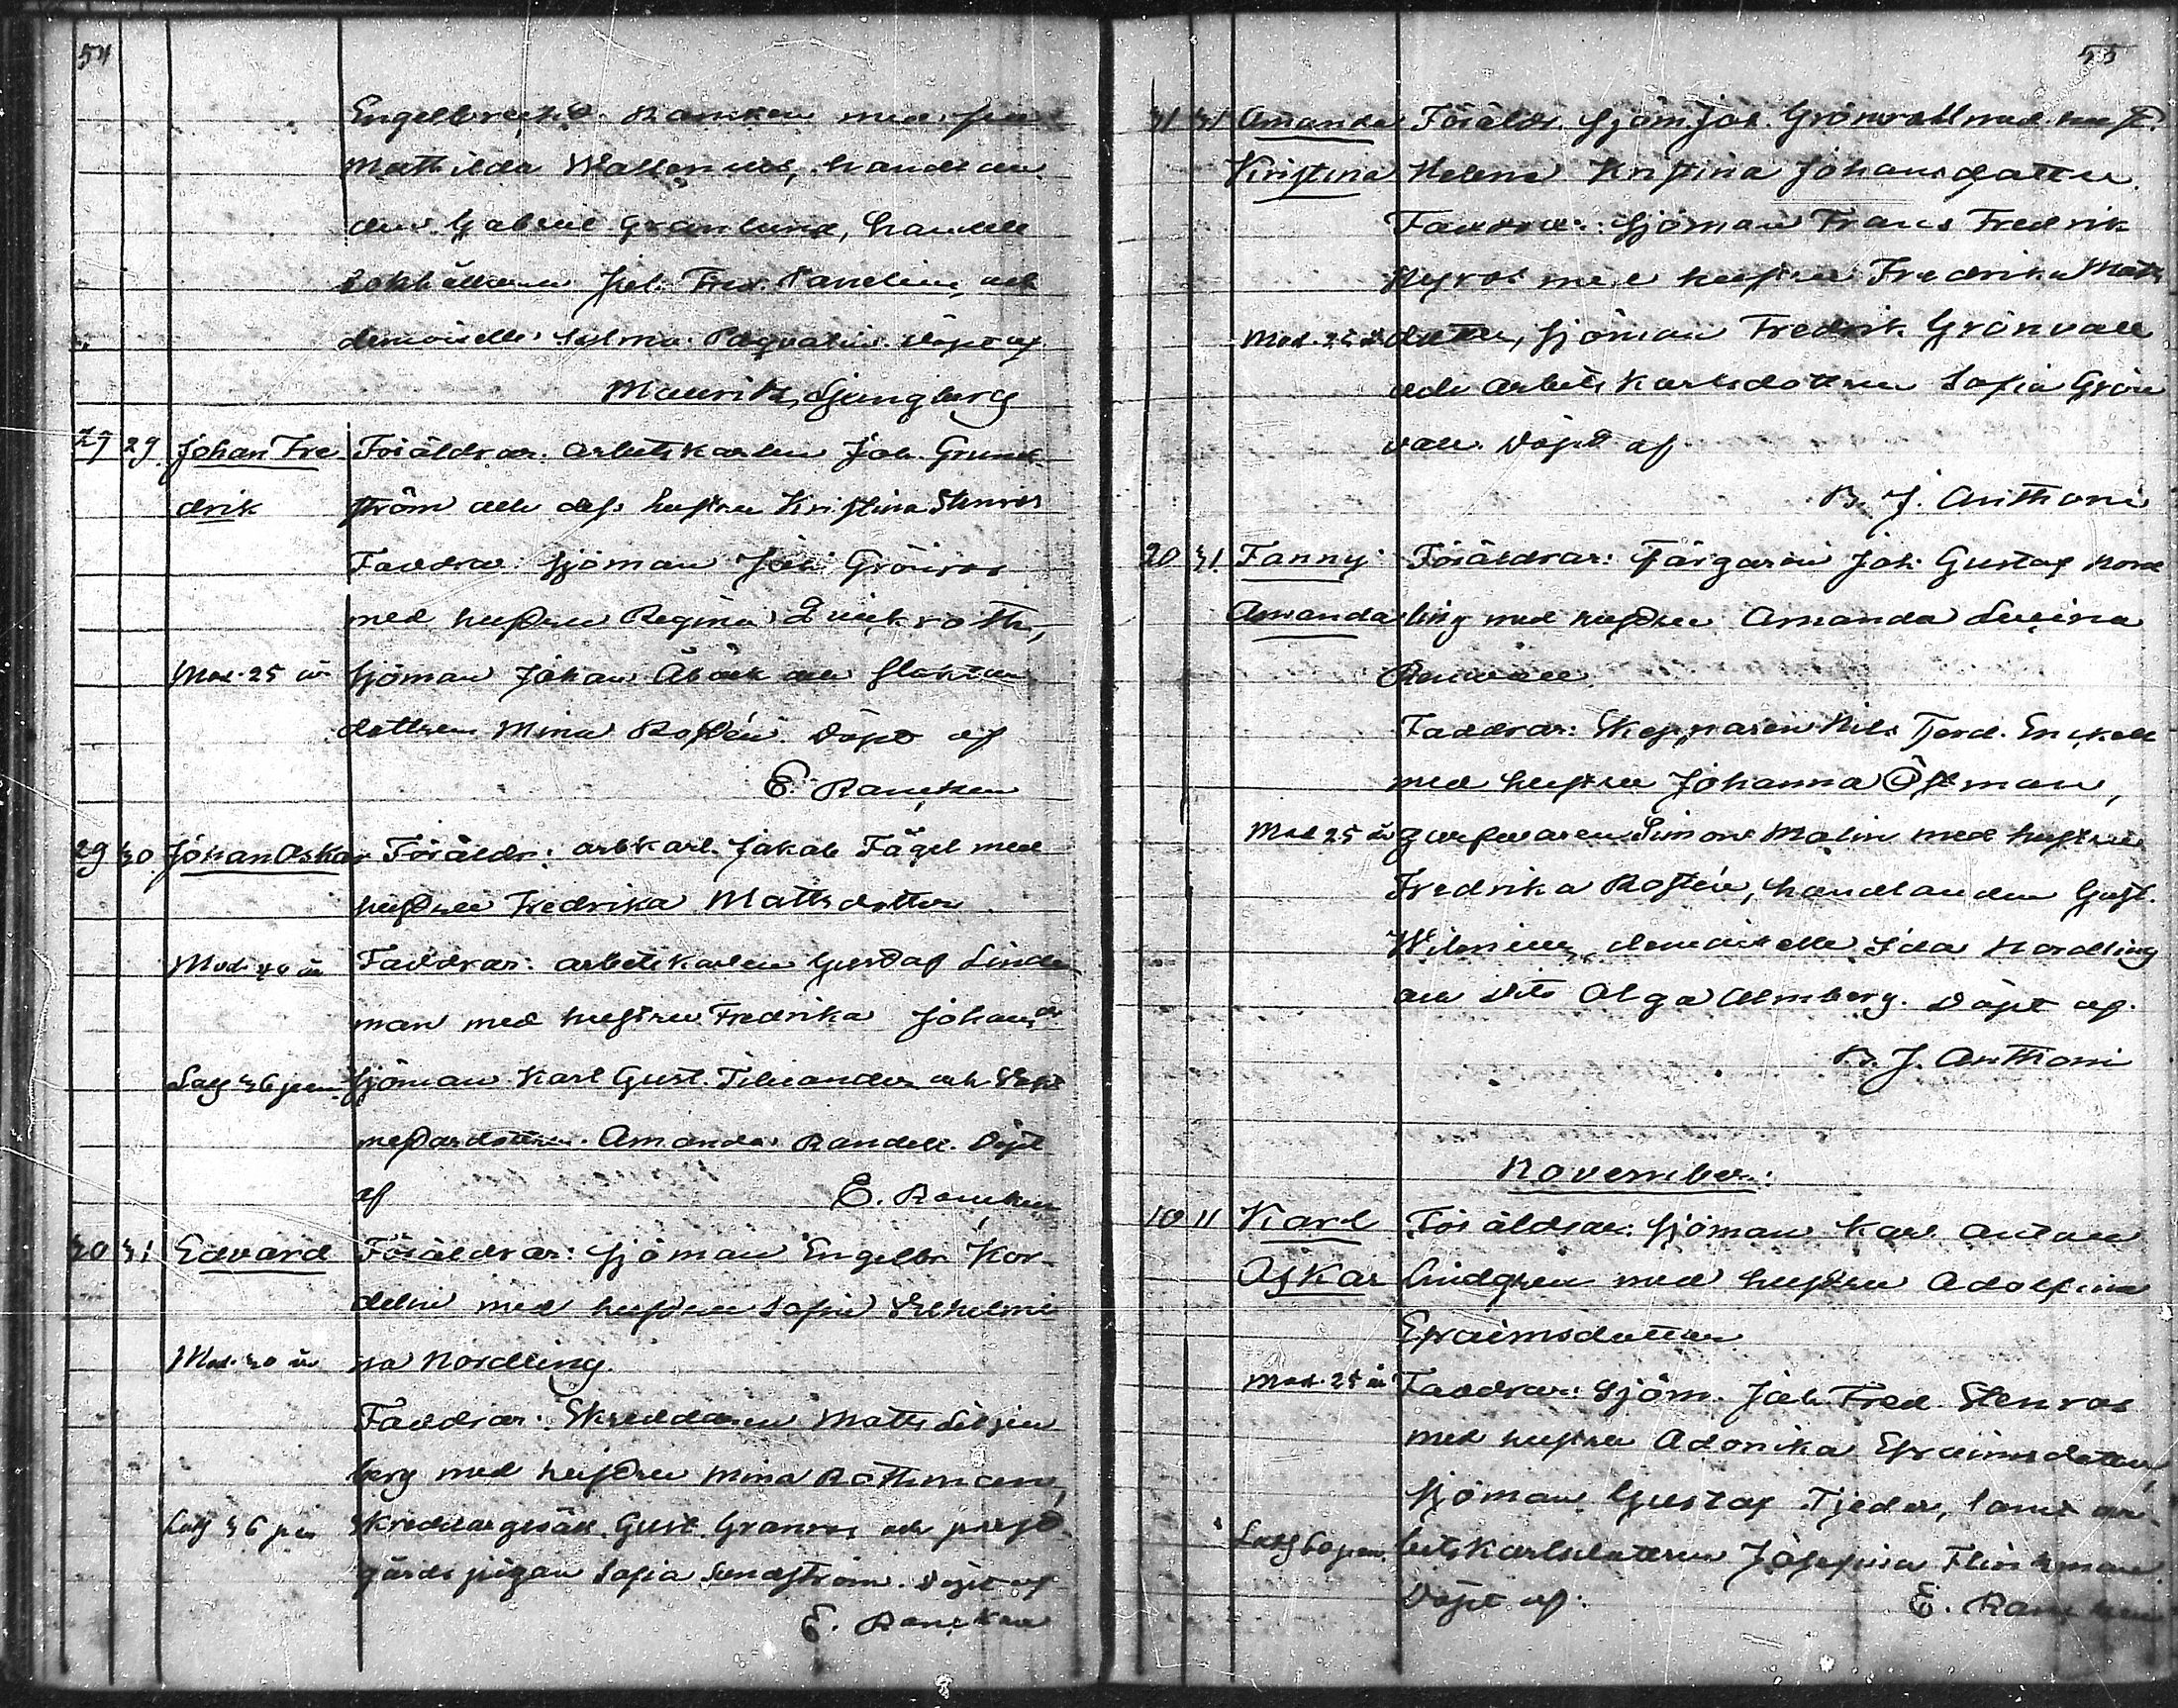 54
Engelbrekt Rancken med fru
Mathilda Wallenius, handlan
den Gabriel Granlund, handels
bokhållaren Joh. Fred. Sandelin, och
demoiselle Selma Döpt af
Maurits Ljungberg
27 29 Johan Fre Föräldrar: arbetskarlen Joh. Grund
drik ström och dess hustru Kristina Stenros
Faddrar: sjöman Joh. Grönros
med hustru Regina Quickroth,
Mod. 25 år sjöman Johan Åbäck och
dottren Mina Rostén. Döpt af
E. Rancken
29 30 Johan Oskar Föräldr: arbkarl. Jakob Fågel med
hustru Fredrika Mattsdotter
Mod. 40 år Faddrar: arbetskarlen Gustaf Linde
man med hustru Fredrika Johansdr
sjöman Karl Gust. och
Amanda Randell. Döpt
af E. Rancken
30 31 Edvard Föräldrar: sjöman Engelbr. Kor-
delin med hustru Sofia Wilhelmi
Mod. 30 år na Nordling.
Faddrar: Skreddaren Matts Liljen
berg med hustru Mina Rothman,
Skreddargesäll. Gust. Granros och prest
gårds pigan Sofia Sundström. Döpt af
E. Rancken
55
31 31 Amanda Föräldr. sjöm. Joh. Grönvall med hust.
Kristina Helena Kristina Johansdotter.
Faddrar: sjöman Frans Fredrik
Nyros med hustru Fredrika Matts
Mod. 25 år dotter, sjöman Fredrik Grönvall
och arbetskarlsdottren Sofia Grön
vall. Döpt af
B. J. Anthoni
20 31 Fanny Föräldrar: Färgaren Joh. Gustaf Nord
Amanda ling med hustru Amanda Lovina
Faddrar: Skepparen Nils Ferd. Enckell
med hustru Johanna Östman,
Mod 25 år garfvaren Simon Malin med hustru
Fredrika Rostén, handlanden Gust.
Wilenius, demoiselle Ida Nordling
och dito Olga Almberg. Döpt af.
B. J. Anthoni
November:
10 11 Karl Föräldrar: sjöman Karl Anton
Oskar Lindgren med hustru Adolfina
Efraimsdotter
Mod. 25 år Faddrar: Sjöm. Joh. Fred. Stenros
med hustru Adonika Efraimsdotter,
sjöman Gustaf Tjeder, samt ar-
betskarlsdottren Josefina Flinkman
Döpt af: E. Rancken